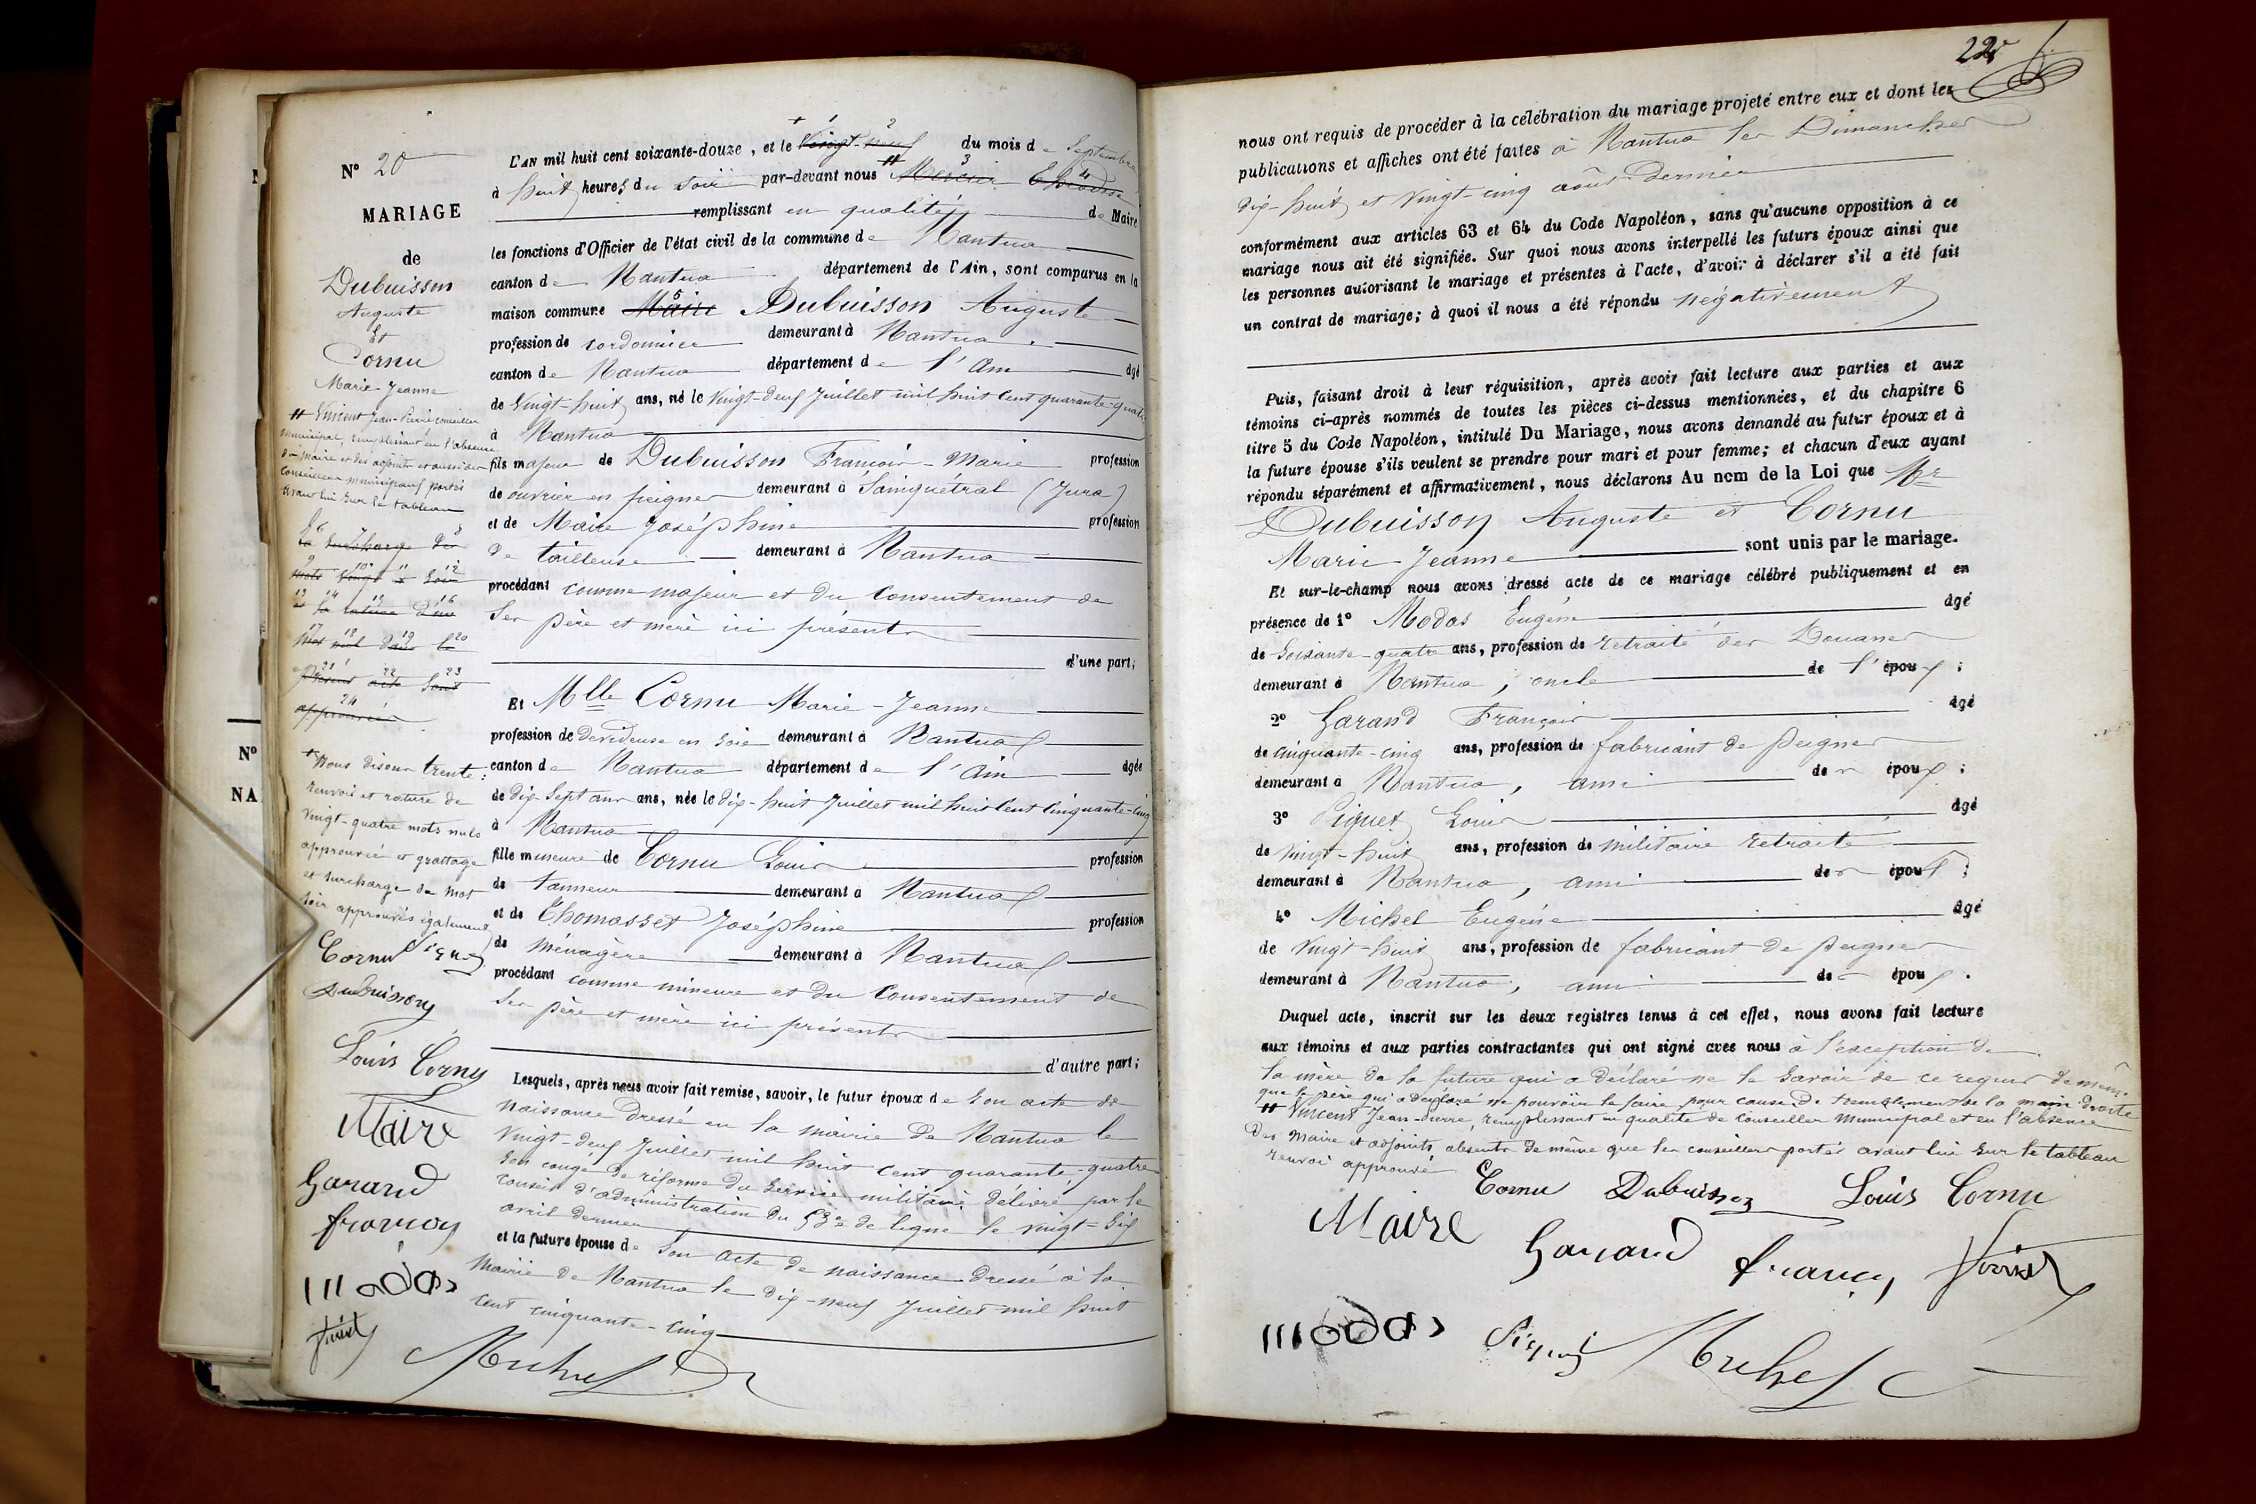 N° 20
MARIAGE
de
Dubuisson
Auguste
Et
Cornu
Marie-Jeanne
# Vincent Jean-Pierre conseiller
municipal, remplissant en l'absence
du maire et des adjoints et aussi des
conseillers municipaux portés
avant lui sur le tableau
6 7 8
la surcharge des
9 10 11 12
mots vingt x soir
13 14 15 16
et la rature d'un
17 18 19 20
mot nul dans le
21 22 23
présent acte sont
24
approuvés
+ Nous disons trente :
renvoi et rature de
vingt-quatre mots nuls
approuvés et grattage
et surcharge du mot
soir approuvés également
Cornu
Dubuisson
Louis Cornu
Maire
Garand
françois
Michel
L'AN mil huit cent soixante-douze, et le + 1 vingt- 2 neuf du mois de Septembre
à huit heures du soir par-devant nous # 3 Mercier 4 Théodose
remplissant en qualité de Maire
les fonctions d'Officier de l'état civil de la commune de Nantua
canton de Nantua département de l'Ain, sont comparus en la
maison commune 5 Maire Dubuisson Auguste
profession de cordonnier demeurant à Nantua
canton de Nantua département de l'Ain âgé
de Vingt-huit ans, né le vingt-deux Juillet mil huit cent quarante-quatre
à Nantua
fils majeur de Dubuisson François-Marie profession
de ouvrier en peignes demeurant à (Jura)
et de Maire Joséphine profession
de tailleuse demeurant à Nantua
procédant comme majeur et du consentement de
ses père et mère ici présents
d'une part;
Et Mlle Cornu Marie-Jeanne
profession de Dévideuse en soie demeurant à Nantua
canton de Nantua département de l'Ain âgée
de dix-sept ans ans, née le dix-huit Juillet mil huit cent cinquante-cinq
à Nantua
fille mineure de Cornu Louis profession
de tanneur demeurant à Nantua
et de Thomasset Joséphine profession
de ménagère demeurant à Nantua
procédant comme mineure et du consentement de
ses père et mère ici présents
d'autre part;
Lesquels, après nous avoir fait remise, savoir, le futur époux de son acte de
naissance dressé en la mairie de Nantua le
vingt-deux Juillet mil huit cent quarante-quatre
son congé de réforme du service militaire délivré par le
conseil d'administration du 53e de ligne le vingt-six
avril dernier
et la future épouse de son acte de naissance dressé à la
Mairie de Nantua le dix-neuf Juillet mil huit
cent cinquante-cinq
N°
NA
22
nous ont requis de procéder à la célébration du mariage projeté entre eux et dont les
publications et affiches ont été faites à Nantua les Dimanches
dix-huit et vingt-cinq août dernier
conformément aux articles 63 et 64 du Code Napoléon, sans qu'aucune opposition à ce
mariage nous ait été signifiée. Sur quoi nous avons interpellé les futurs époux ainsi que
les personnes autorisant le mariage et présentes à l'acte, d'avoir à déclarer s'il a été fait
un contrat de mariage; à quoi il nous a été répondu négativement
Puis, faisant droit à leur réquisition, après avoir fait lecture aux parties et aux
témoins ci-après nommés de toutes les pièces ci-dessus mentionnées, et du chapitre 6
titre 5 du Code Napoléon, intitulé Du Mariage, nous avons demandé au futur époux et à
la future épouse s'ils veulent se prendre pour mari et pour femme; et chacun d'eux ayant
répondu séparément et affirmativement, nous déclarons Au nom de la Loi que Mr
Dubuisson Auguste et Cornu
Marie-Jeanne sont unis par le mariage.
Et sur-le-champ nous avons dressé acte de ce mariage célébré publiquement et en
présence de 1° Modas Eugène âgé
de soixante-quatre ans, profession de retraité des Douanes
demeurant à Nantua, oncle de l'époux ;
2° Garand François âgé
de cinquante-cinq ans, profession de fabricant de peignes
demeurant à Nantua, ami de époux ;
3° Piquet Louis âgé
de vingt-huit ans, profession de militaire retraité
demeurant à Nantua, ami de époux ;
4° Michel Eugène âgé
de vingt-huit ans, profession de fabricant de peignes
demeurant à Nantua, ami de époux .
Duquel acte, inscrit sur les deux registres tenus à cet effet, nous avons fait lecture
aux témoins et aux parties contractantes qui ont signé avec nous à l'exception de
la mère de la future qui a déclaré ne le savoir de ce requis de même
que le père qui a déclaré ne pouvoir le faire pour cause de tremblement de la main droite
# Vincent Jean-Pierre, remplissant en qualité de Conseiller Municipal et en l'absence
des Maire et adjoints absents de même que les conseillers portés avant lui sur le tableau
renvoi approuvé
Cornu Dubuisson Louis Cornu
Maire Garand françois
Piquet Michel